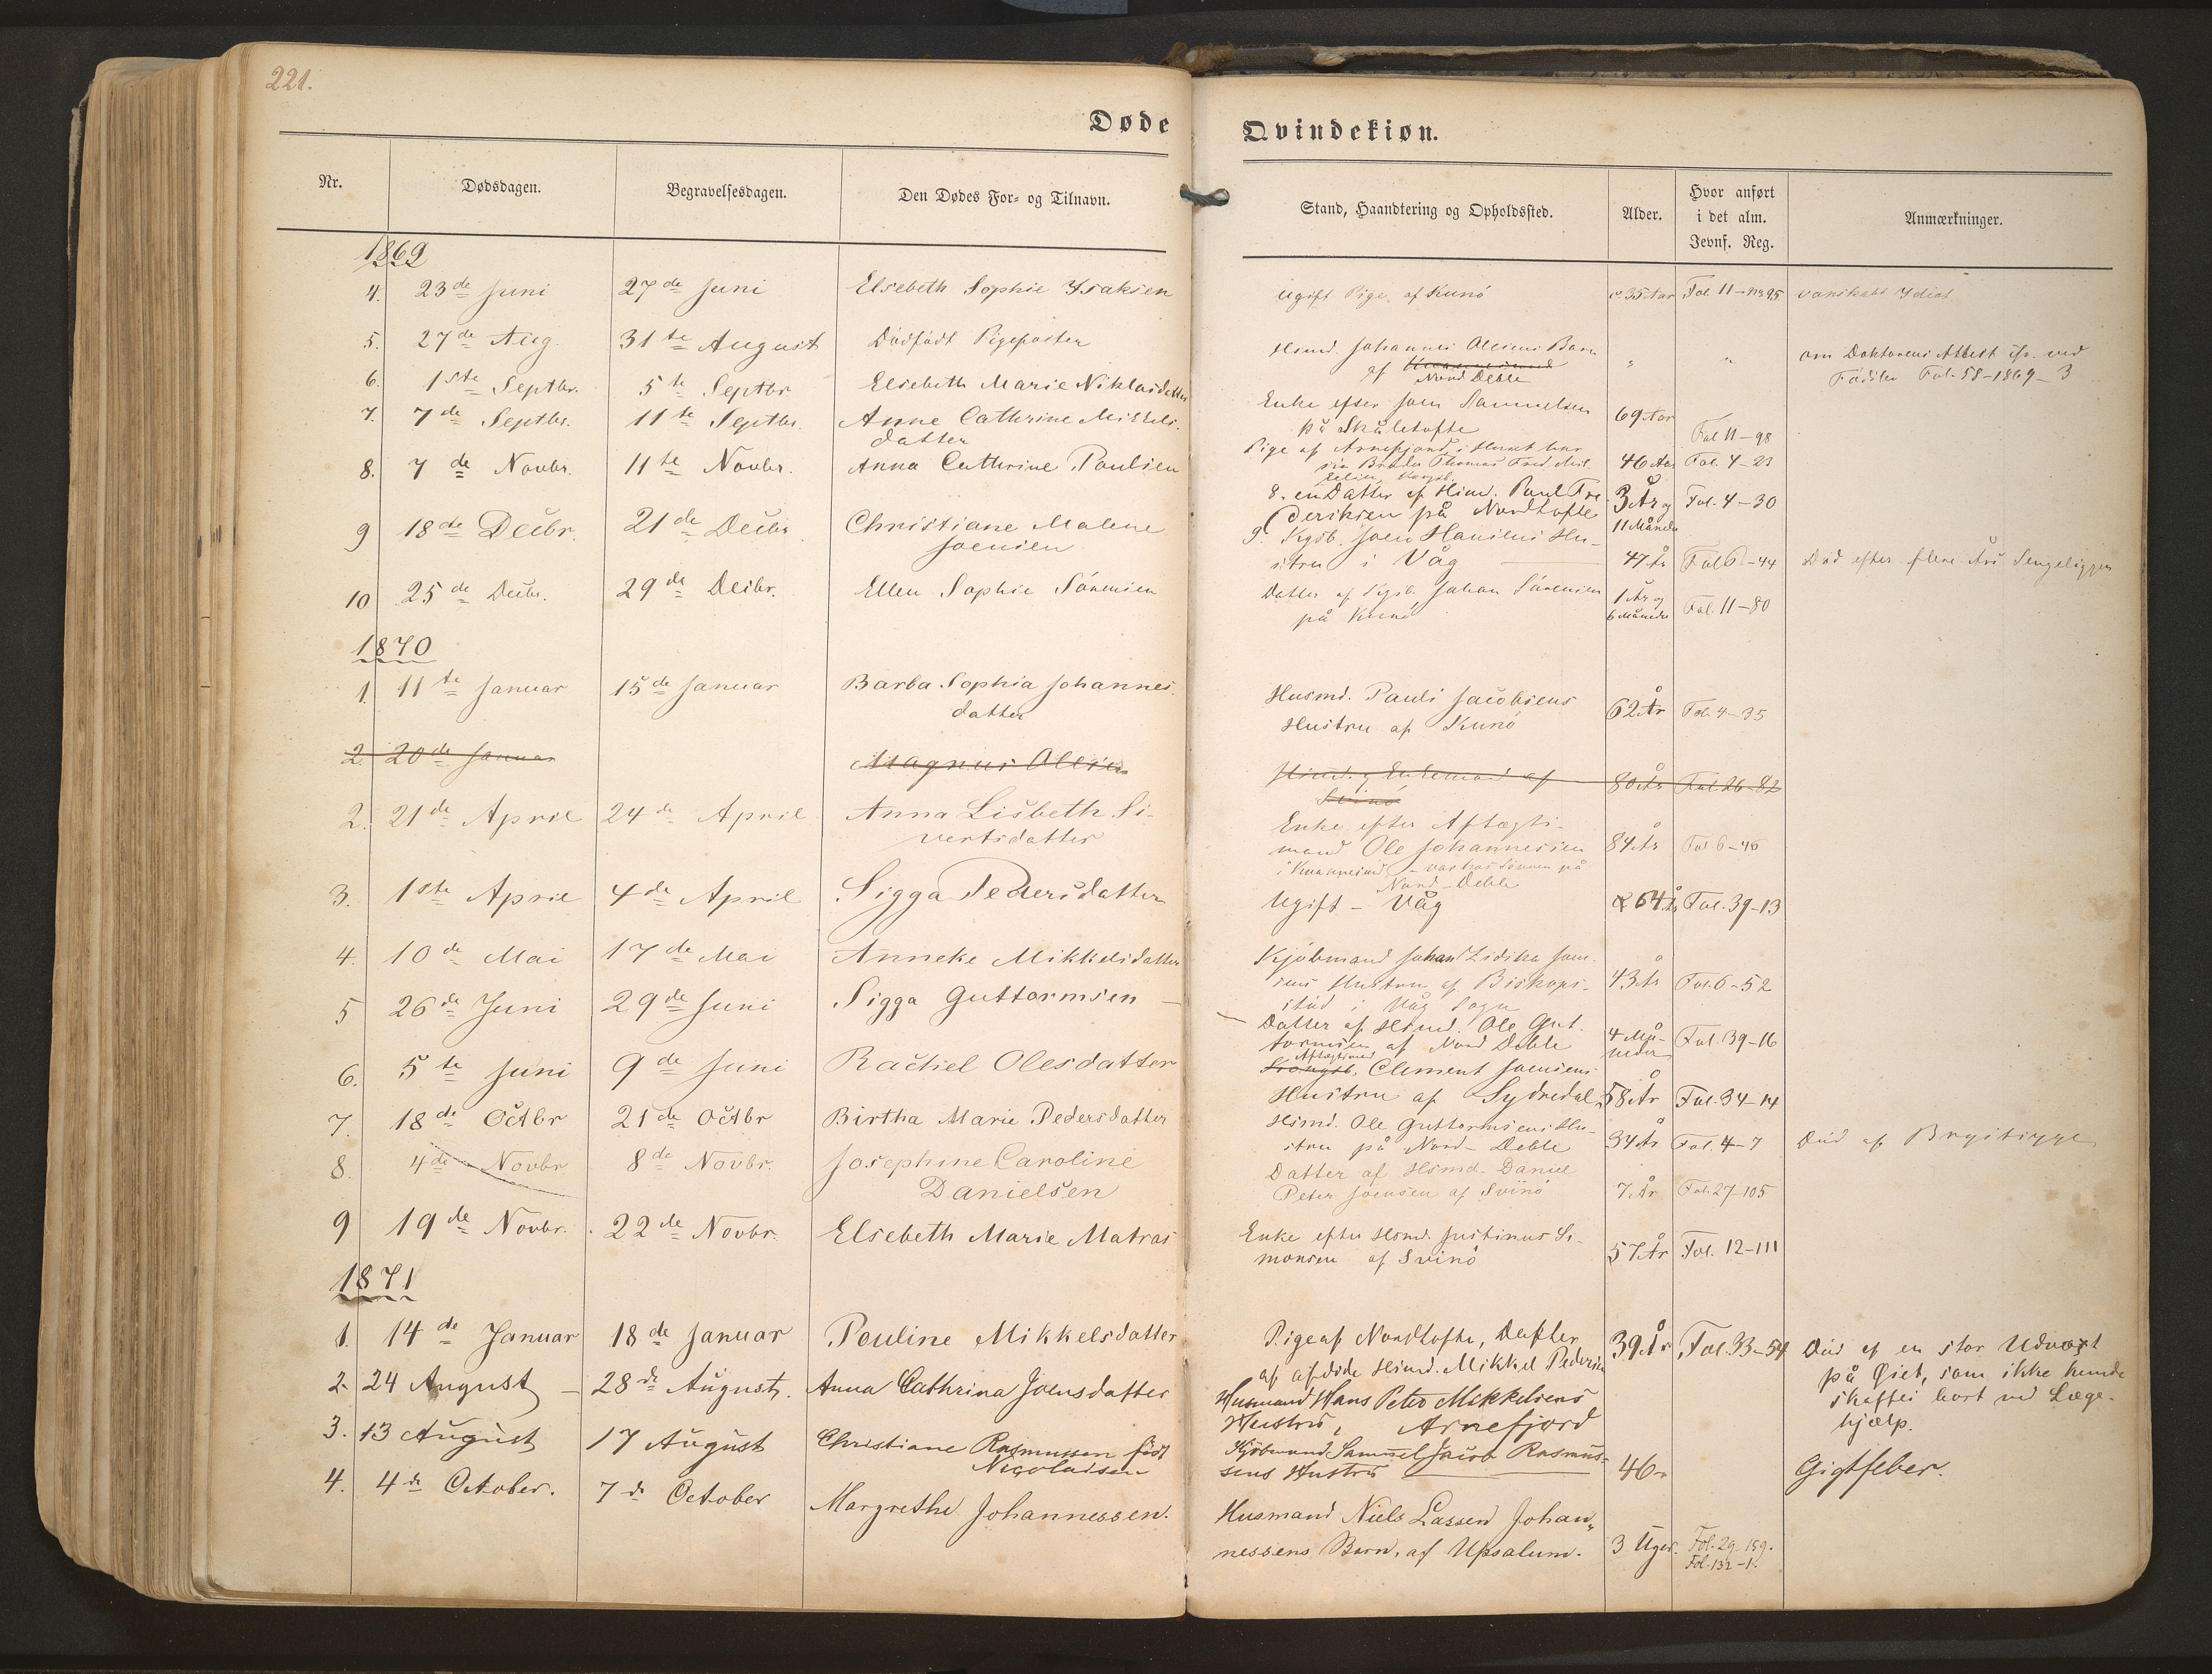 221.
Døde Qvindekiøn.
Nr. Dødsdagen. Begravelsesdagen. Den Dødes For- og Tilnavn. Stand, Haandtering og Opholdssted. Alder. Hvor anført i det alm. Jevnf. Reg. Anmærkninger.
1869
4. 23de Juni 27de Juni Elsebeth Sophie Isaksen Ugift Pige af Kunö c. 35 Aar Fol. 11-nr 95 vanskabt Idiot
5. 27de Aug. 31te August Dödfödt Pigefoster Hsmd. Johannes Olesens Barn " " om Doktorens Attest
af Nord Deble Födsler Fol. 58-1869-3
6. 1ste Septbr. 5te Septbr Elsebeth Marie Niklasdatter Enke efter Joen Samuelsen 69 Aar
på Skåletofte Fol 11-98
7. 7de Septbr. 11te Septbr. Anne Cathrine Mikkels-
datter
Pige af Arnefjord i Huset hos
sin Broder Thomas Fred. Mik- 46 Aar Fol. 4-23
8. 7de Novbr. 11te Novbr. Anna Cathrine Poulsen
8. en Datter af Hsmd. Poul Fre- 3 År og Fol. 4-30
deriksen på Nordtofte 11 Måneder
9 18de Decbr. 21de Decbr Christiane Malene
Joensen
9. Kgsb. Joen Hansens Hu-
stru i Våg 47 År Fol 6-44 Död efter flere Års Sengeliggen
10 25de Decbr. 29de Decbr. Ellen Sophie Sörensen Datter af Kgsb. Johan Sörensen 1 År og Fol. 11-80
på Kunö 6 Måneder
1870
1. 11te Januar 15de Januar Barba Sophia Johannes-
datter
Husmd. Pauli Jacobsens 62 År Fol. 4-35
Hustru af Kunö
2. 20de Januar Magnus Olesen Hsmd. og Enkemand af 80 År Fol. 26-82
Svinö
2. 21de April 24de April Anna Lisbeth Si-
vertsdatter
Enke efter Aftægts-
mand Ole Johannessen 84 År Fol 6-46
i Kvannesund - var hos Sönnen på
Nord-Deble
3. 1ste April 4de April Sigga Pedersdatter Ugift - Våg 64 År Fol. 39-13
4. 10de Mai 17de Mai Anneke Mikkelsdatter Kjöbmand Johan Zidika Joen-
sens Hustru af Biskops- 43 År Fol. 6-52
stöd i Våg Sogn
5 26de Juni 29de Juni Sigga Guttormsen - Datter af Hsmd. Ole Gut- 4 Må- Fol. 39-16
tormsen af Nord Deble neder
6. 5te Juni 9de Juni Rachel Olesdatter Aftægtsmd
Kongsb. Clement Joensens
Hustru af Sydredal 58 År Fol. 34-14
7. 18de Octbr 21de Octbr Birtha Marie Pedersdatter Hsmd. Ole Guttormsens Hu-
stru på Nord-Deble 34 År Fol. 4-7 Död af Brystsyge
8. 4de Novbr 8de Novbr. Josephine Caroline
Danielsen
Datter af Hsmd. Daniel
Peter Joensen af Svinö 7 År Fol. 27-105
9 19de Novbr. 22de Novbr. Elsebeth Marie Matras Enke efter Hsmd. Justinus Si-
monsen af Svinö 57 År Fol. 12-111
1871
1. 14de Januar 18de Januar Pouline Mikkelsdatter Pige af Nordtofte, Datter 39 År Fol. 33-54 Död af en stor Udvæxt
af afdöde Hsmd. Mikkel Pedersen på Öiet, som ikke kunde
skaffes bort ved Læge-
hjælp.
2. 24 August - 28de August. Anna Cathrina Joensdatter Husmand Hans Peter Mikkelsens
Hustru, Arnefjord
3. 13 August 17 August Christiane Rasmussen född
Nicolaisen
Kjöbmand Samuel Jacob Rasmus-
sens Hustru 46 Gigtfeber.
4. 4de October. 7de October Margrethe Johannessen. Husmand Niels Lassen Johan-
nessens Barn, af Upsalum. 3 Uger. Fol. 29-159.
Fol. 132-1.